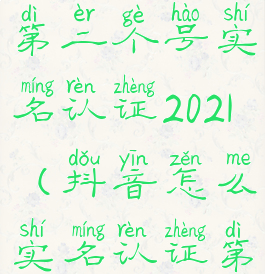 dì èr gè hào shí
第二个号实
míng rèn zhèng
名认证2021
dǒu yīn zěn me
（抖音怎么
shí míng rèn zhèng dì
实名认证第